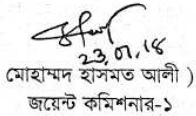 23.01.18
মোহাম্মদ হাসমত আলী )
জয়েন্ট কমিশনার-১